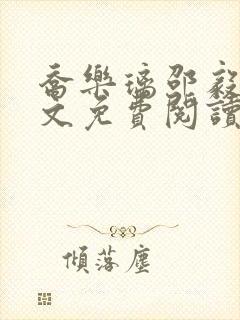 喬樂璃邵毅
文免費閱讀
傾落塵